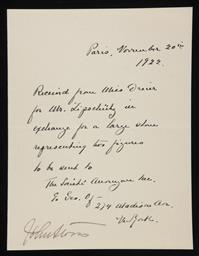 Paris, November 20th
1922.
Received from Miss Dreier
for Mr. Lipschitz in
exchange for a large stone
representing two figures
to be sent to
The Société Anonyme Inc.
274 Madison Ave.
N. York.